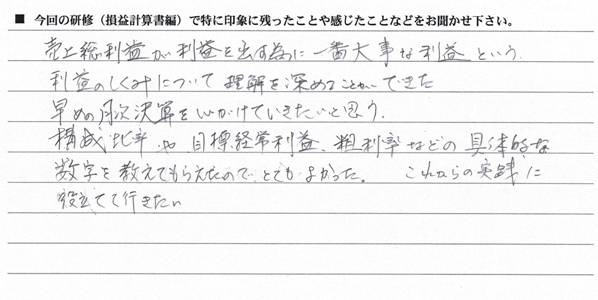 ■ 今回の研修（損益計算書編）で特に印象に残ったことや感じたことなどをお聞かせ下さい。
売上総利益が利益を出す為に一番大事な利益という
利益のしくみについて理解を深めることができた
早めの月次決算を心がけていきたいと思う。
構成比率や目標経常利益、粗利率などの具体的な
数字を教えてもらえたのでとてもよかった。 これからの実践に
役立てて行きたい